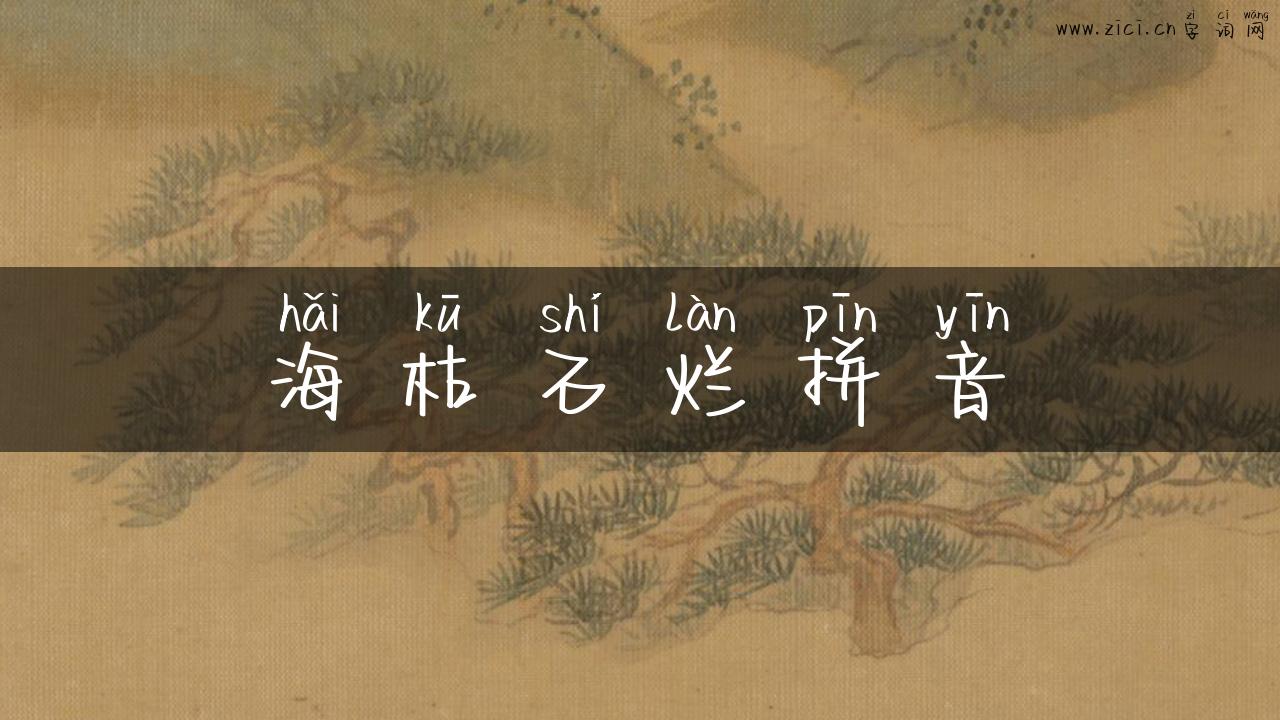 zì cí wǎng
www.zìcí.cn 字词网
hǎi kū shí làn pīn yīn
海枯石烂拼音